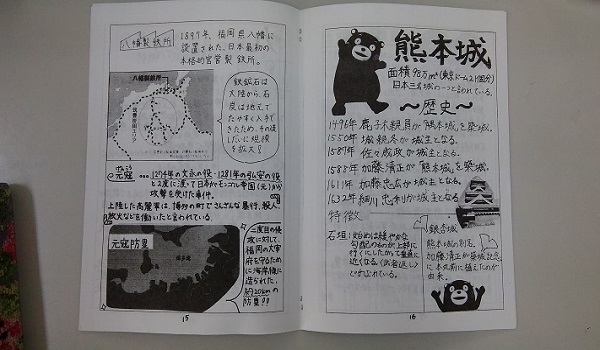 八幡製鉄所
1897年、福岡県八幡に
設置された、日本最初の
本格的官営製鉄所。
八幡製鉄所
筑豊炭田エリア
鉄鉱石は
大陸から、石
炭は地元で
たやすく入手で
きたため、その後
しだいに規模
を拡大!
げんこう
元寇…1274年の文永の役・1281年の弘安の役
と2度に渡って日本がモンゴル帝国(元)から
攻撃を受けた事件。
上陸した高麗軍は、博多の町でさんざんな暴行、殺人、
放火などを働いたと言われている。
元寇防塁
博多湾
二度目の侵
攻に対して
福岡の大宰
府を守るため
に海岸線に
造られた、
約20kmの
防塁!!
15
熊本城
面積98万m²(東京ドーム21個分)
日本三名城の一つと言われている。
〜歴史〜
1496年 鹿子木親員が「熊本城」を築城。
1550年 城親冬が城主となる。
1587年 佐々成政が城主となる。
1588年 加藤清正が「熊本城」を築城。
1611年 加藤忠広が城主となる。
1632年 細川忠利が城主となる。
特徴
石垣:始めは緩やかな
勾配のものが上部に
行くにしたがって垂直に
近くなる。
といわれている。
銀杏城
熊本城の別名。
加藤清正が築城記念
に木を前に植えたのが
由来。
16